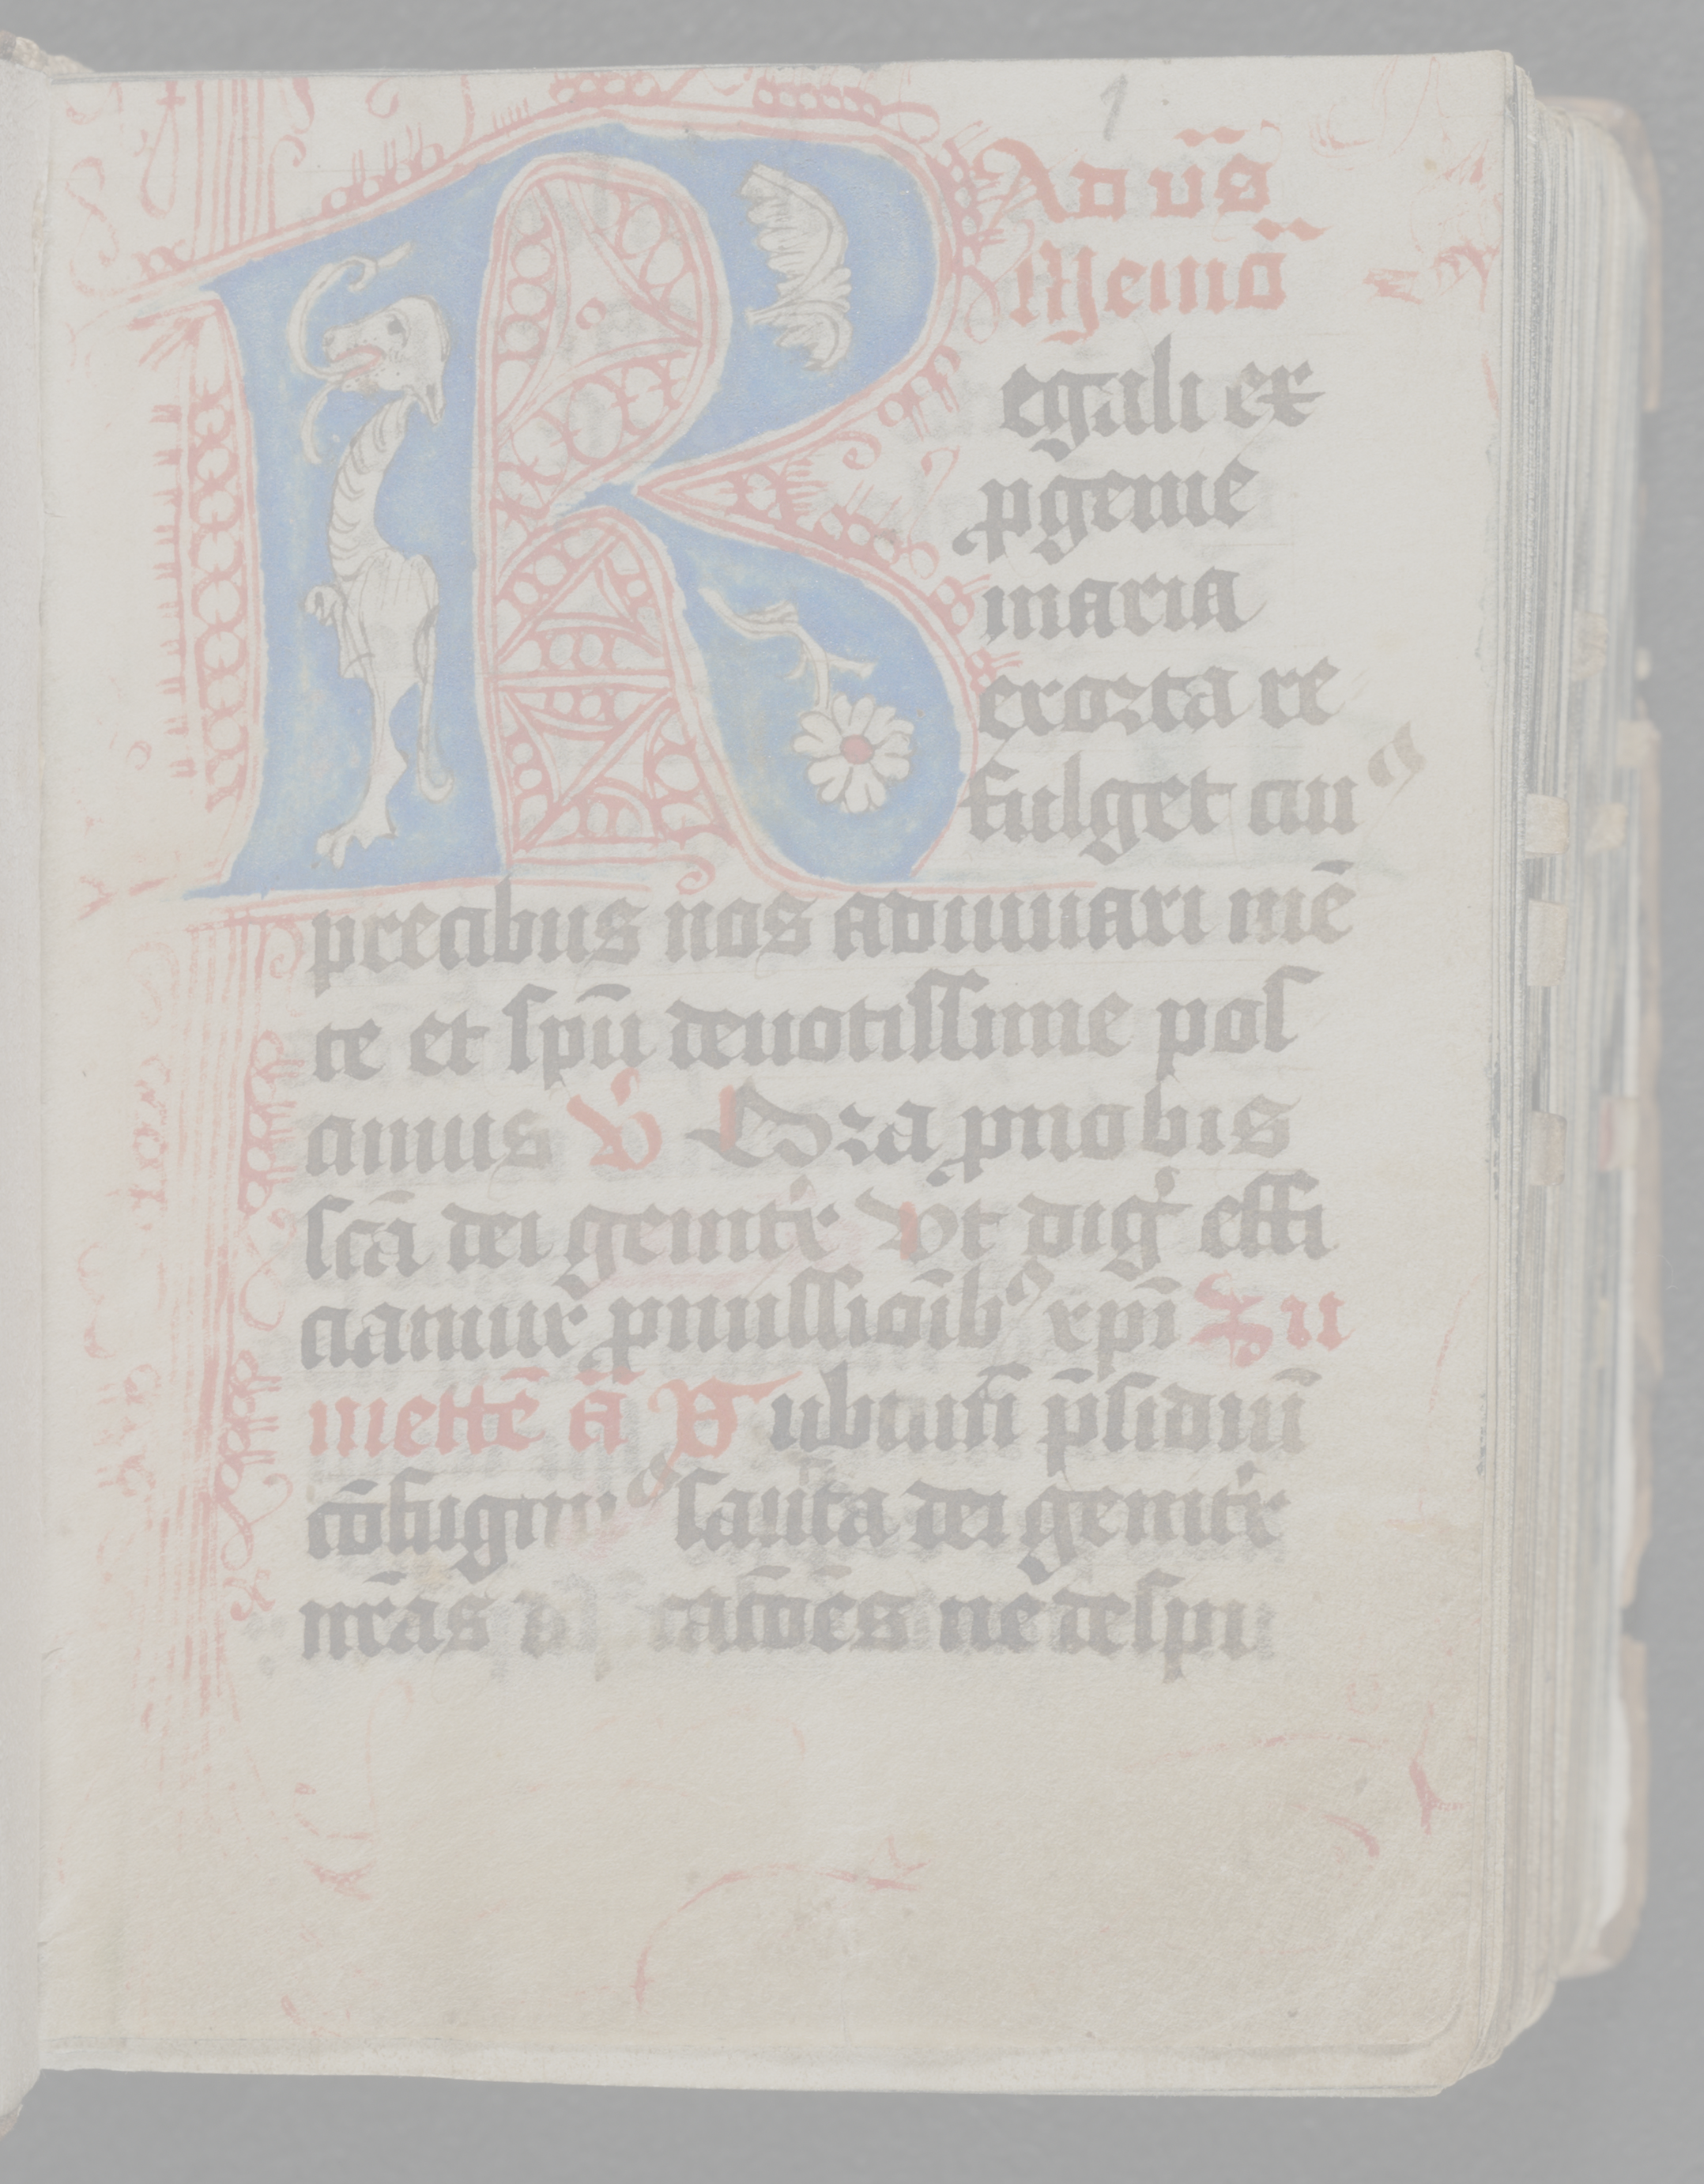 1
Ad vīs
Memoā
Regali ex
ꝓgenie
maria
exorta re
fulget cuiꝰ
precibus nos adiuuari mē
te et spū deuotissime pos
cimus V Ora pnobis
scā dei genitͥx Vt digͥ effi
ciamur ꝓmissioīb⁹ xpi Nu
mettē ā Sub tuū p̄sidiū
cōfugimꝰ sancta dei genitͥx
nr̄as d catōēs ne despi